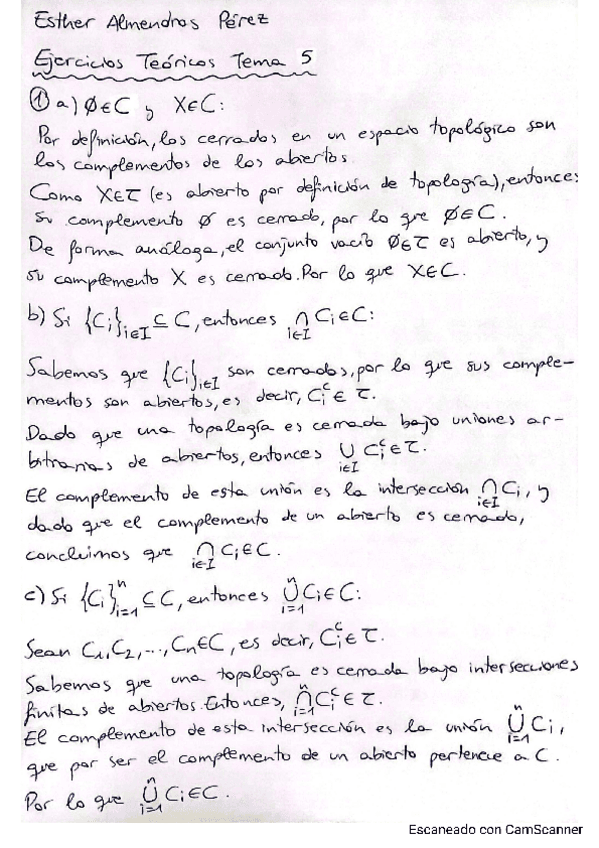 Esther Almendros Pérez
Ejercicios Teóricos Tema 5
① a) ∅∈C y X∈C:
Por definición, los cerrados en un espacio topológico son
los complementos de los abiertos.
Como X∈τ (es abierto por definición de topología), entonces
su complemento ∅ es cerrado, por lo que ∅∈C.
De forma análoga, el conjunto vacío ∅∈τ es abierto, y
su complemento X es cerrado. Por lo que X∈C.
b) Si {Cᵢ}ᵢ∈I ⊆ C, entonces ∩ᵢ∈I Cᵢ∈C:
Sabemos que {Cᵢ}ᵢ∈I son cerrados, por lo que sus comple-
mentos son abiertos, es decir, Cᵢᶜ ∈ τ.
Dado que una topología es cerrada bajo uniones ar-
bitrarias de abiertos, entonces ∪ᵢ∈I Cᵢᶜ∈τ.
El complemento de esta unión es la intersección ∩ᵢ∈I Cᵢ, y
dado que el complemento de un abierto es cerrado,
concluimos que ∩ᵢ∈I Cᵢ∈C.
c) Si {Cᵢ}ⁿᵢ₌₁ ⊆ C, entonces ∪ⁿᵢ₌₁ Cᵢ∈C:
Sean C₁, C₂, ..., Cₙ∈C, es decir, Cᵢᶜ∈τ.
Sabemos que una topología es cerrada bajo intersecciones
finitas de abiertos. Entonces, ∩ⁿᵢ₌₁ Cᵢᶜ ∈ τ.
El complemento de esta intersección es la unión ∪ⁿᵢ₌₁ Cᵢ,
que por ser el complemento de un abierto pertenece a C.
Por lo que ∪ⁿᵢ₌₁ Cᵢ∈C.
Escaneado con CamScanner